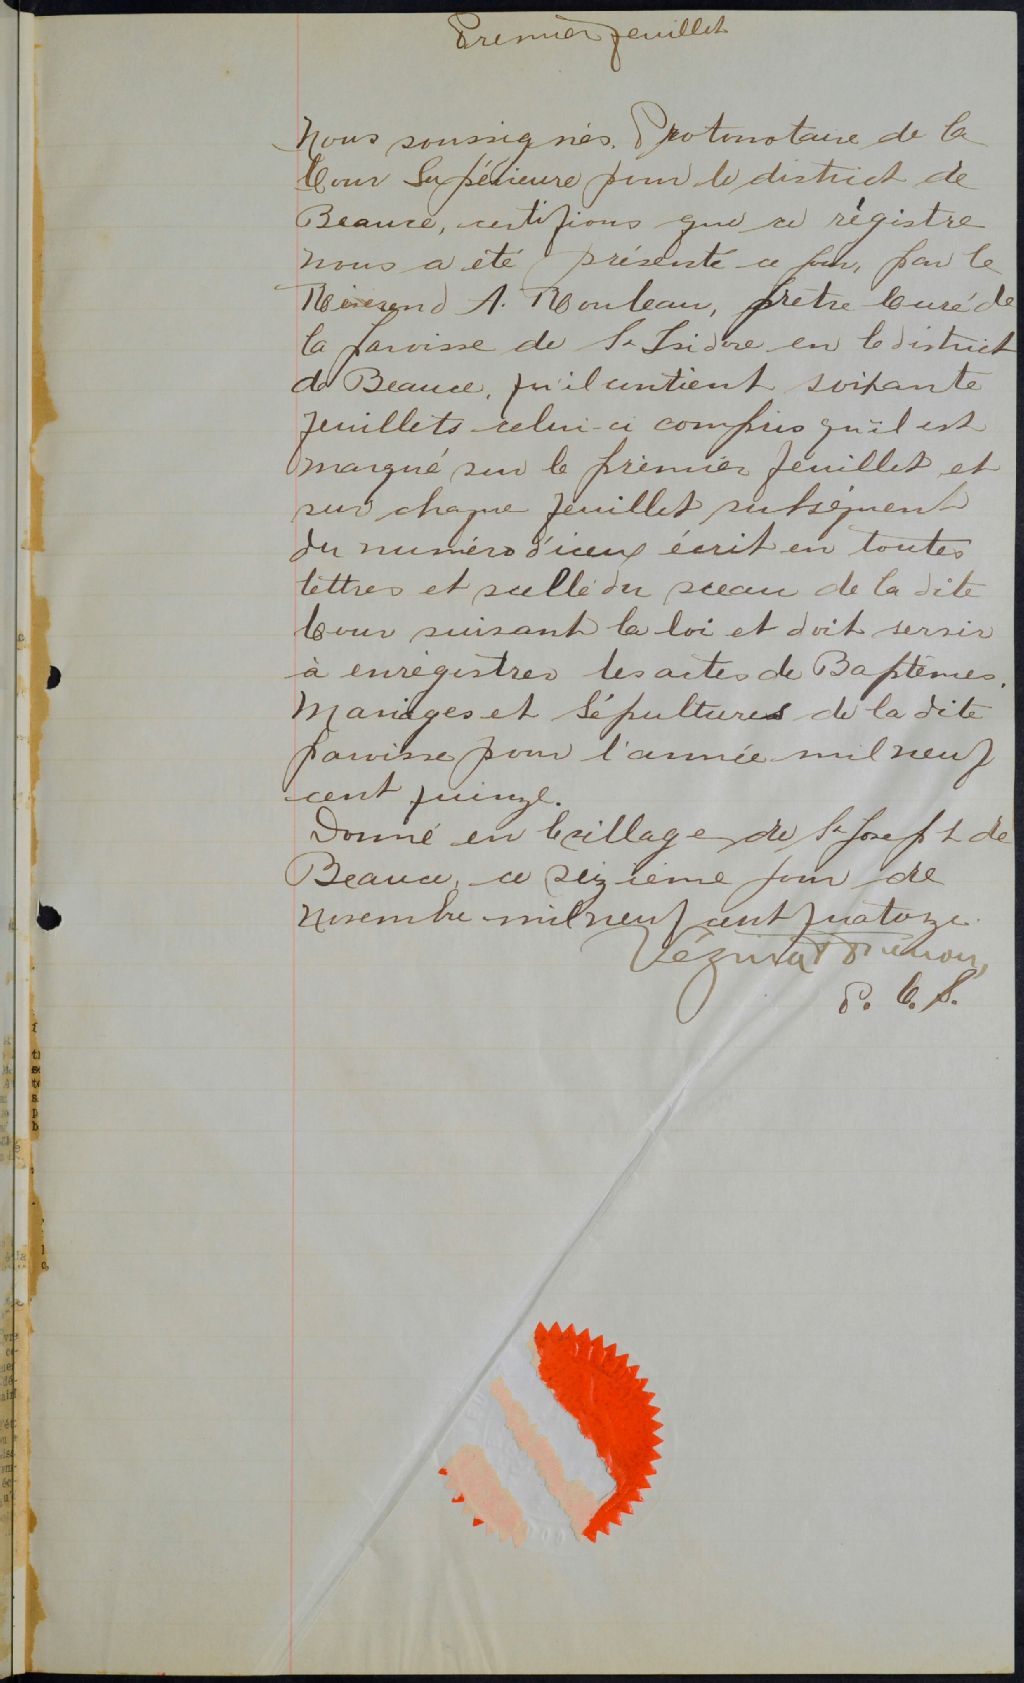 Premier feuillet
Nous soussignés, Protonotaire de la
Cour Supérieure pour le district de
Beauce, certifions que ce régistre
nous a été présenté ce jour, par le
Révérend A. Rouleau, prêtre Curé de
la paroisse de St Isidore en le district
de Beauce, qu'il contient soixante
feuillets celui-ci compris qu'il est
marqué sur le premier feuillet et
sur chaque feuillet subséquent
du numéro d'iceux écrit en toutes
lettres et scellé du sceau de la dite
Cour suivant la loi et doit servir
à enrégistrer les actes de Baptêmes,
Mariages et Sépultures de la dite
paroisse pour l'année mil neuf
cent quinze.
Donné en le village de St Joseph de
Beauce, ce seizième jour de
Novembre mil neuf cent quatorze.
Vézina
P. C. S.